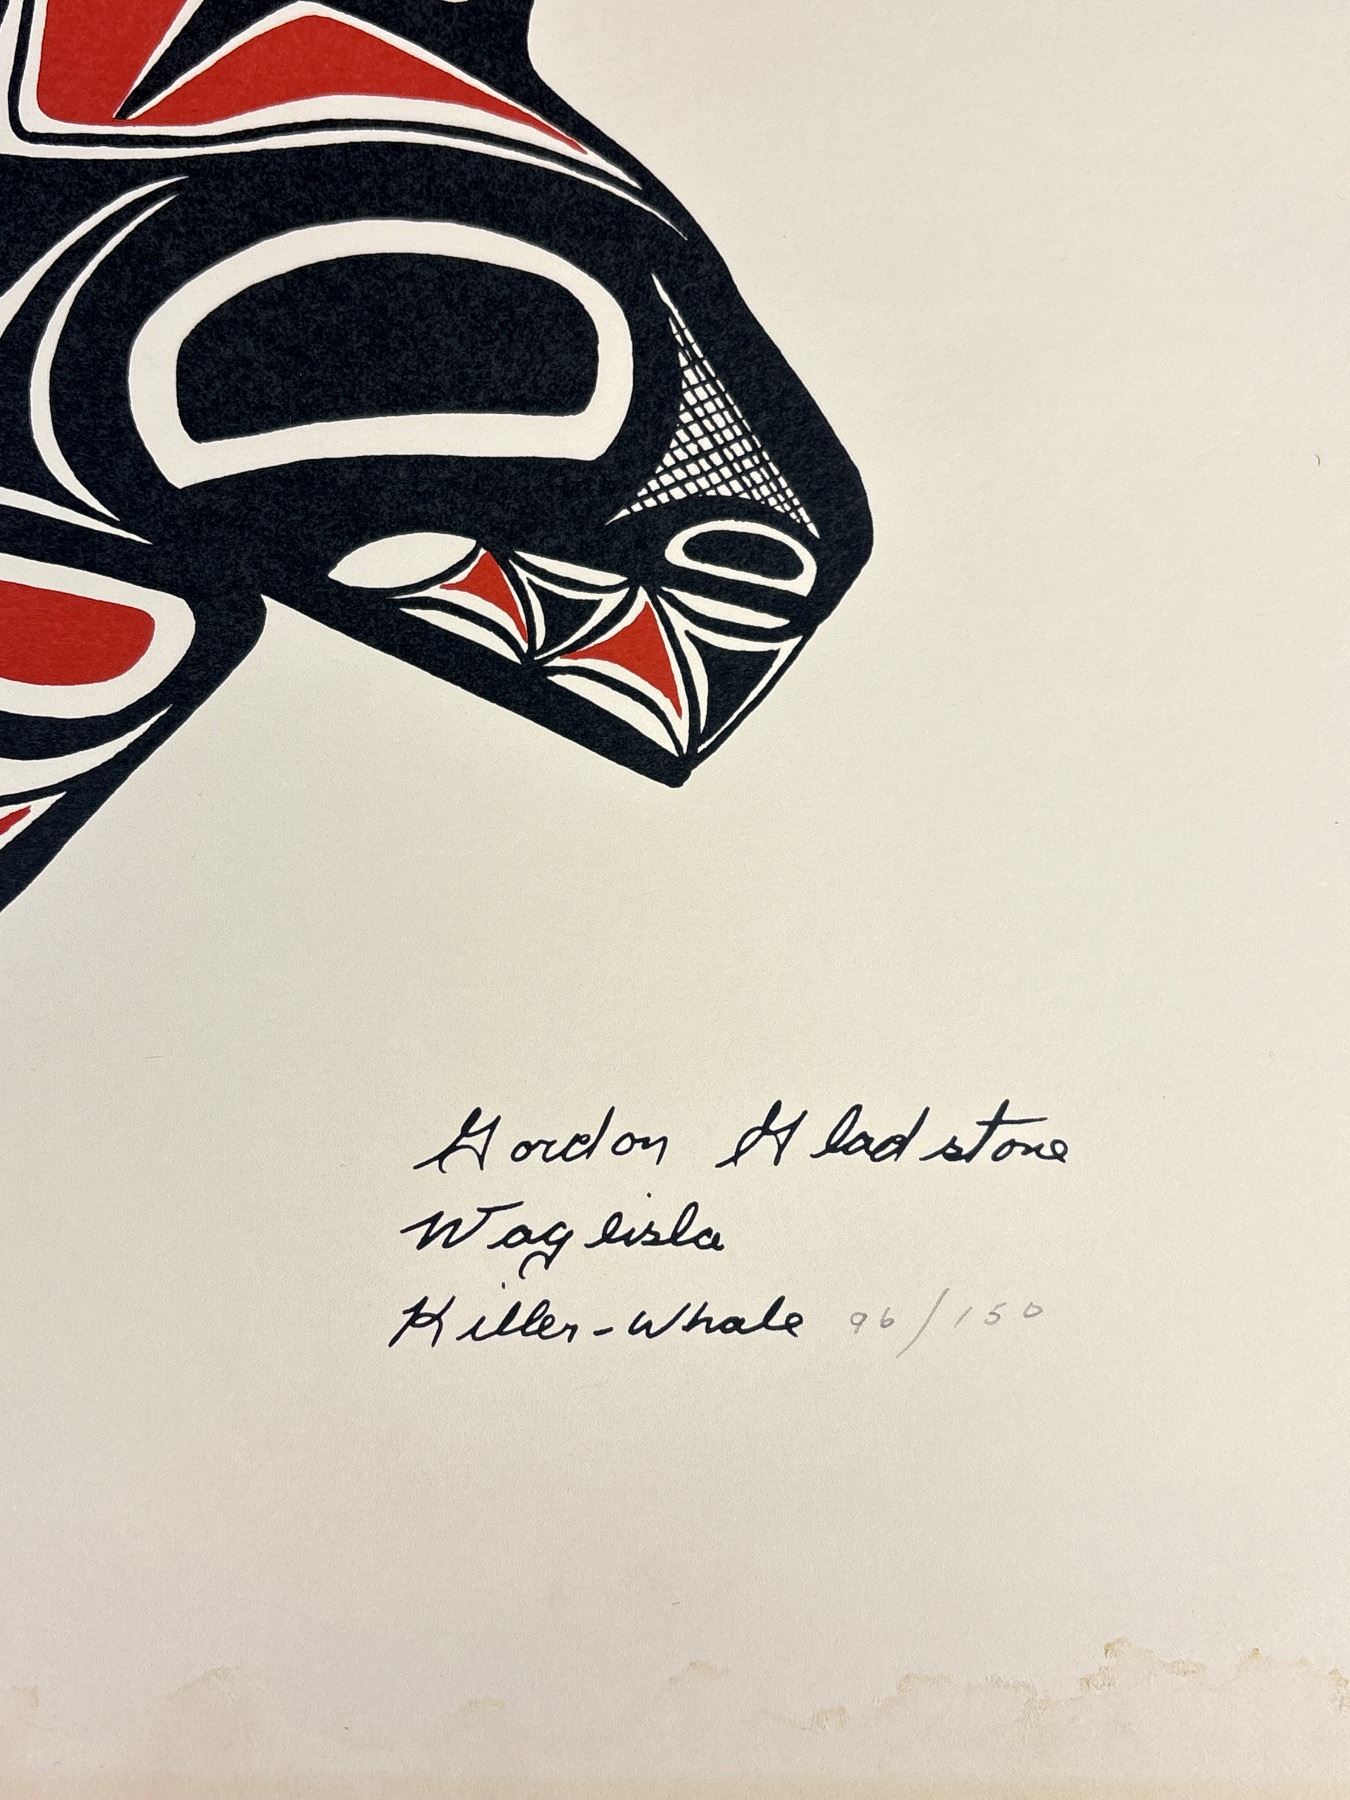 Gordon Gladstone
Waglisla
Killer-Whale 96/150